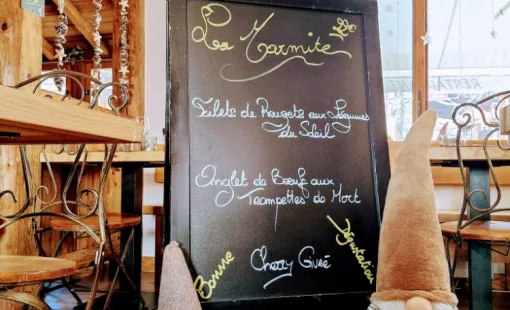 La Marmite
Filets de Rougets aux Légumes
du Soleil
Onglet de Bœuf aux
Trompettes de Mort
Cherry Givré
Bonne
Dégustation